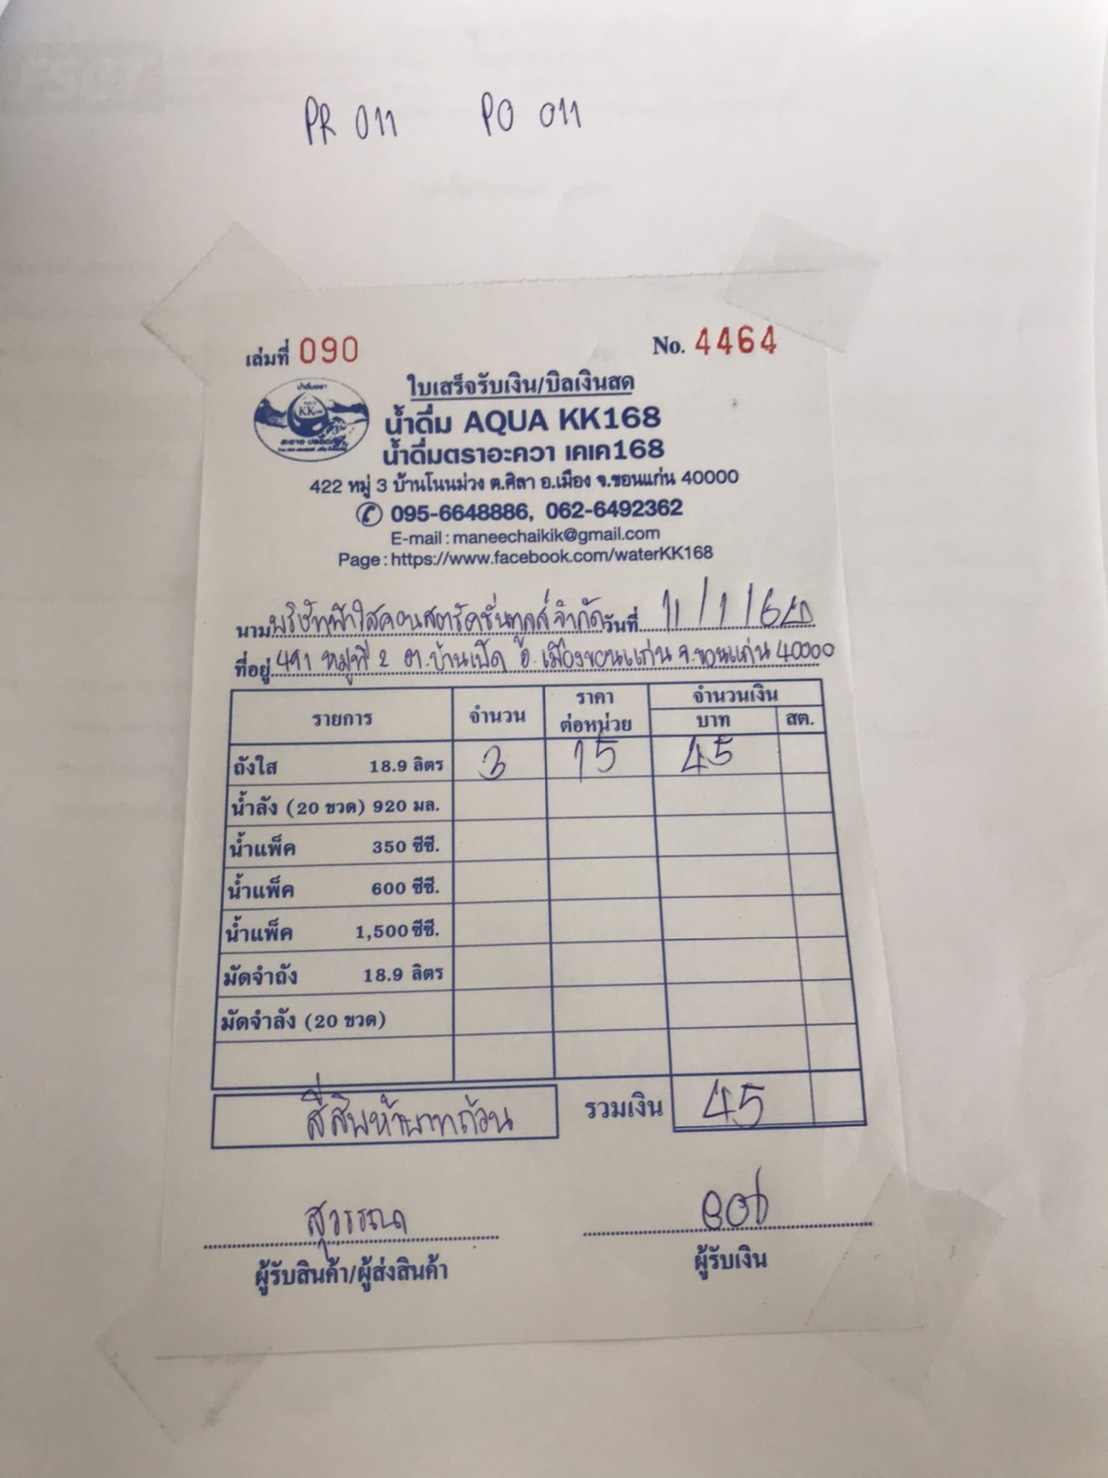 PR 011 PO 011
เล่มที่ 090 No. 4464
ใบเสร็จรับเงิน/บิลเงินสด
น้ำดื่ม AQUA KK168
น้ำดื่มตราอะควา เคเค168
422 หมู่ 3 บ้านโนนม่วง ต.ศิลา อ.เมือง จ.ขอนแก่น 40000
095-6648886, 062-6492362
E-mail : maneechaikik@gmail.com
Page : https://www.facebook.com/waterKK168
นาม บริษัทฟ้าใสคอนสตรัคชั่นทูลส์ จำกัด วันที่ 11/1/
ที่อยู่ 491 หมู่ที่ 2 ต.บ้านเป็ด อ.เมืองขอนแก่น จ.ขอนแก่น 40000
รายการ จำนวน ราคา ต่อหน่วย จำนวนเงิน บาท สต.
ถังใส 18.9 ลิตร 3 15 45
น้ำลัง (20 ขวด) 920 มล.
น้ำแพ็ค 350 ซีซี.
น้ำแพ็ค 600 ซีซี.
น้ำแพ็ค 1,500 ซีซี.
มัดจำถัง 18.9 ลิตร
มัดจำลัง (20 ขวด)
สี่สิบห้าบาทถ้วน รวมเงิน 45
ผู้รับสินค้า/ผู้ส่งสินค้า ผู้รับเงิน